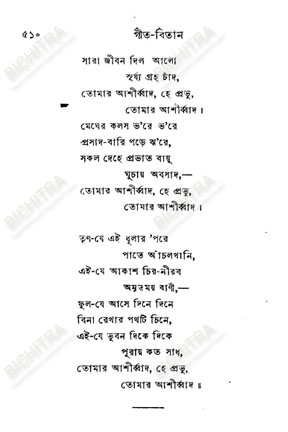 ৫১০
গীত-বিতান
সারা জীবন দিল আলো
সূর্য্য গ্রহ চাঁদ,
তোমার আশীর্ব্বাদ, হে প্রভু,
তোমার আশীর্ব্বাদ।
মেঘের কলস ভ'রে ভ'রে
প্রসাদ-বারি পড়ে ঝ'রে,
সকল দেহে প্রভাত বায়ু
ঘুচায় অবসাদ,—
তোমার আশীর্ব্বাদ, হে প্রভু,
তোমার আশীর্ব্বাদ।
তৃণ-যে এই ধূলার 'পরে
পাতে আঁচলখানি,
এই-যে আকাশ চির-নীরব
অমৃতময় বাণী,—
ফুল-যে আসে দিনে দিনে
বিনা রেখার পথটি চিনে,
এই-যে ভুবন দিকে দিকে
পূরায় কত সাধ,
তোমার আশীর্ব্বাদ, হে প্রভু,
তোমার আশীর্ব্বাদ॥
BICHITRA